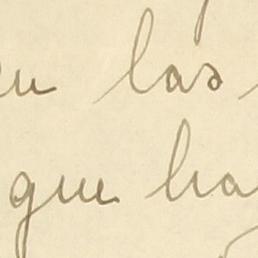 en las
que ha